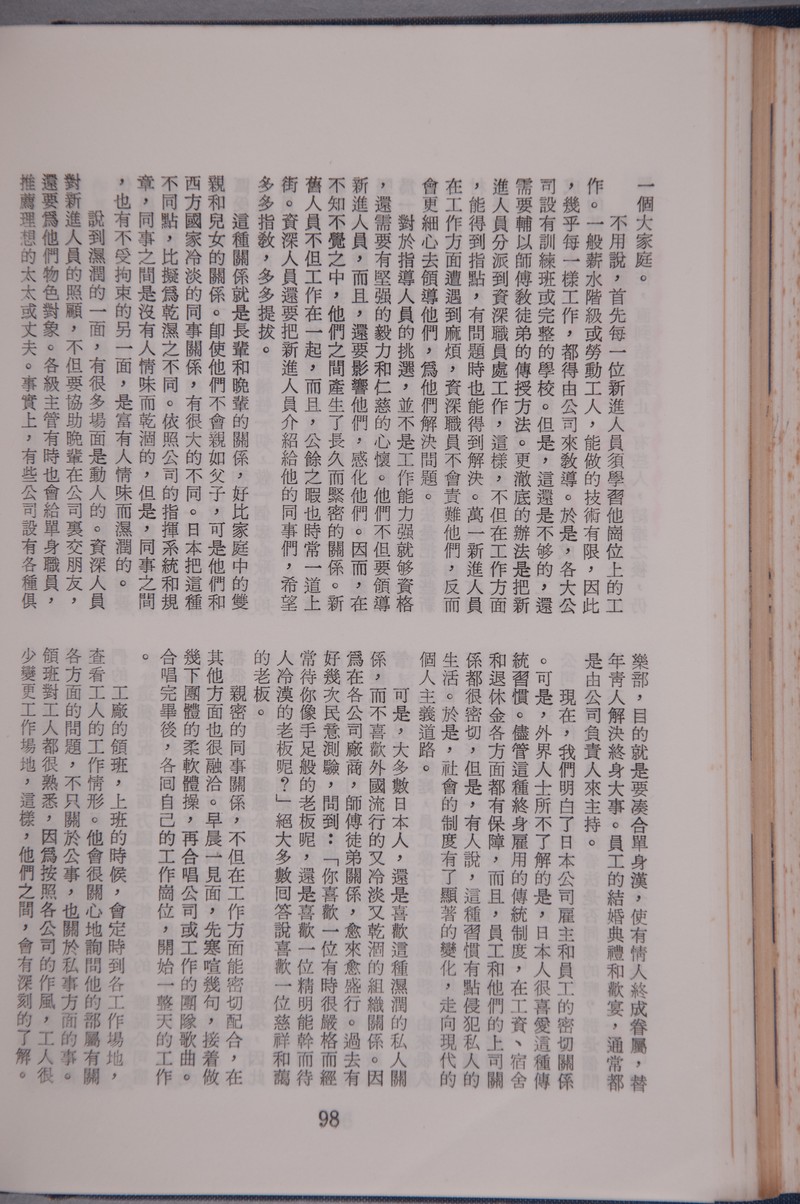 一個大家庭。
不用說，首先每一位新進人員須學習他崗位上的工
作。一般薪水階級或勞動工人，能做的技術有限，因此
，幾乎每一樣工作，都得由公司來教導。於是，各大公
司設有訓練班或完整的學校。但是，這還是不够的，還
需要輔以師傅教徒弟的傳授方法。更澈底的辦法是把新
進人員分派到資深職員處工作，這樣，不但在工作方面
，能得到指點，有問題時也能得到解決。萬一新進人員
在工作方面遭遇到麻煩，資深職員不會責難他們，反而
會更細心去領導他們，爲他們解決問題。
對於指導人員的挑選，並不是工作能力强就够資格
，還需要有堅强的毅力和仁慈的心懷。他們不但要領導
新進人員，而且，還要影響他們，感化他們。因而，在
不知不覺之中，他們之間產生了長久而緊密的關係。新
舊人員不但工作在一起，而且，公餘之暇也時常一道上
街。資深人員還要把新進人員介紹給他的同事們，希望
多多指教，多多提拔。
這種關係就是長輩和晚輩的關係，好比家庭中的雙
親和兒女的關係。卽使他們不會親如父子，可是他們和
西方國家冷淡的同事關係，有很大的不同。日本把這種
不同點，比擬爲乾濕之不同。依照公司的指揮系統和規
章，同事之間是沒有人情味而乾涸的，但是，同事之間
，也有不受拘束的另一面，是富有人情味而濕潤的。
說到濕潤的一面，有很多場面是動人的。資深人員
對新進人員的照顧，不但要協助晚輩在公司裏交朋友，
還要爲他們物色對象。各級主管有時也會給單身職員，
推薦理想的太太或丈夫。事實上，有些公司設有各種俱
樂部，目的就是要凑合單身漢，使有情人終成眷屬，替
年青人解決終身大事。員工的結婚典禮和歡宴，通常都
是由公司負責人來主持。
現在，我們明白了日本公司雇主和員工的密切關係
。可是，外界人士所不了解的是，日本人很喜愛這種傳
統習慣。儘管這種終身雇用的傳統制度，在工資、宿舍
和退休金各方面都有保障，而且，員工和他們的上司關
係都很密切，但是，有人說，這種習慣有點侵犯私人的
生活。於是，社會的制度有了顯著的變化，走向現代的
個人主義道路。
可是，大多數日本人，還是喜歡這種濕潤的私人關
係，而不喜歡外國流行的又冷淡又乾涸的組織關係。因
爲在各公司廠商，師傅徒弟關係，愈來愈盛行。過去有
好幾次民意測驗，問到：「你喜歡一位有時很嚴格而經
常待你像手足般的老板呢，還是喜歡一位精明能幹而待
人冷漠的老板呢？」絕大多數囘答說喜歡一位慈祥和藹
的老板。
親密的同事關係，不但在工作方面能密切配合，在
其他方面也很融洽。早晨一見面，先寒喧幾句，接着做
幾下團體的柔軟體操，再合唱公司或工作的團隊歌曲。
合唱完畢後，各囘自己的工作崗位，開始一整天的工作
。
工廠的領班，上班的時候，會定時到各工作場地，
查看工人的工作情形。他會很關心地詢問他的部屬有關
各方面的問題，不只關於公事，也關於私事方面的事。
領班對工人都很熟悉，因爲按照各公司的作風，工人很
少變更工作場地，這樣，他們之間，會有深刻的了解。
98